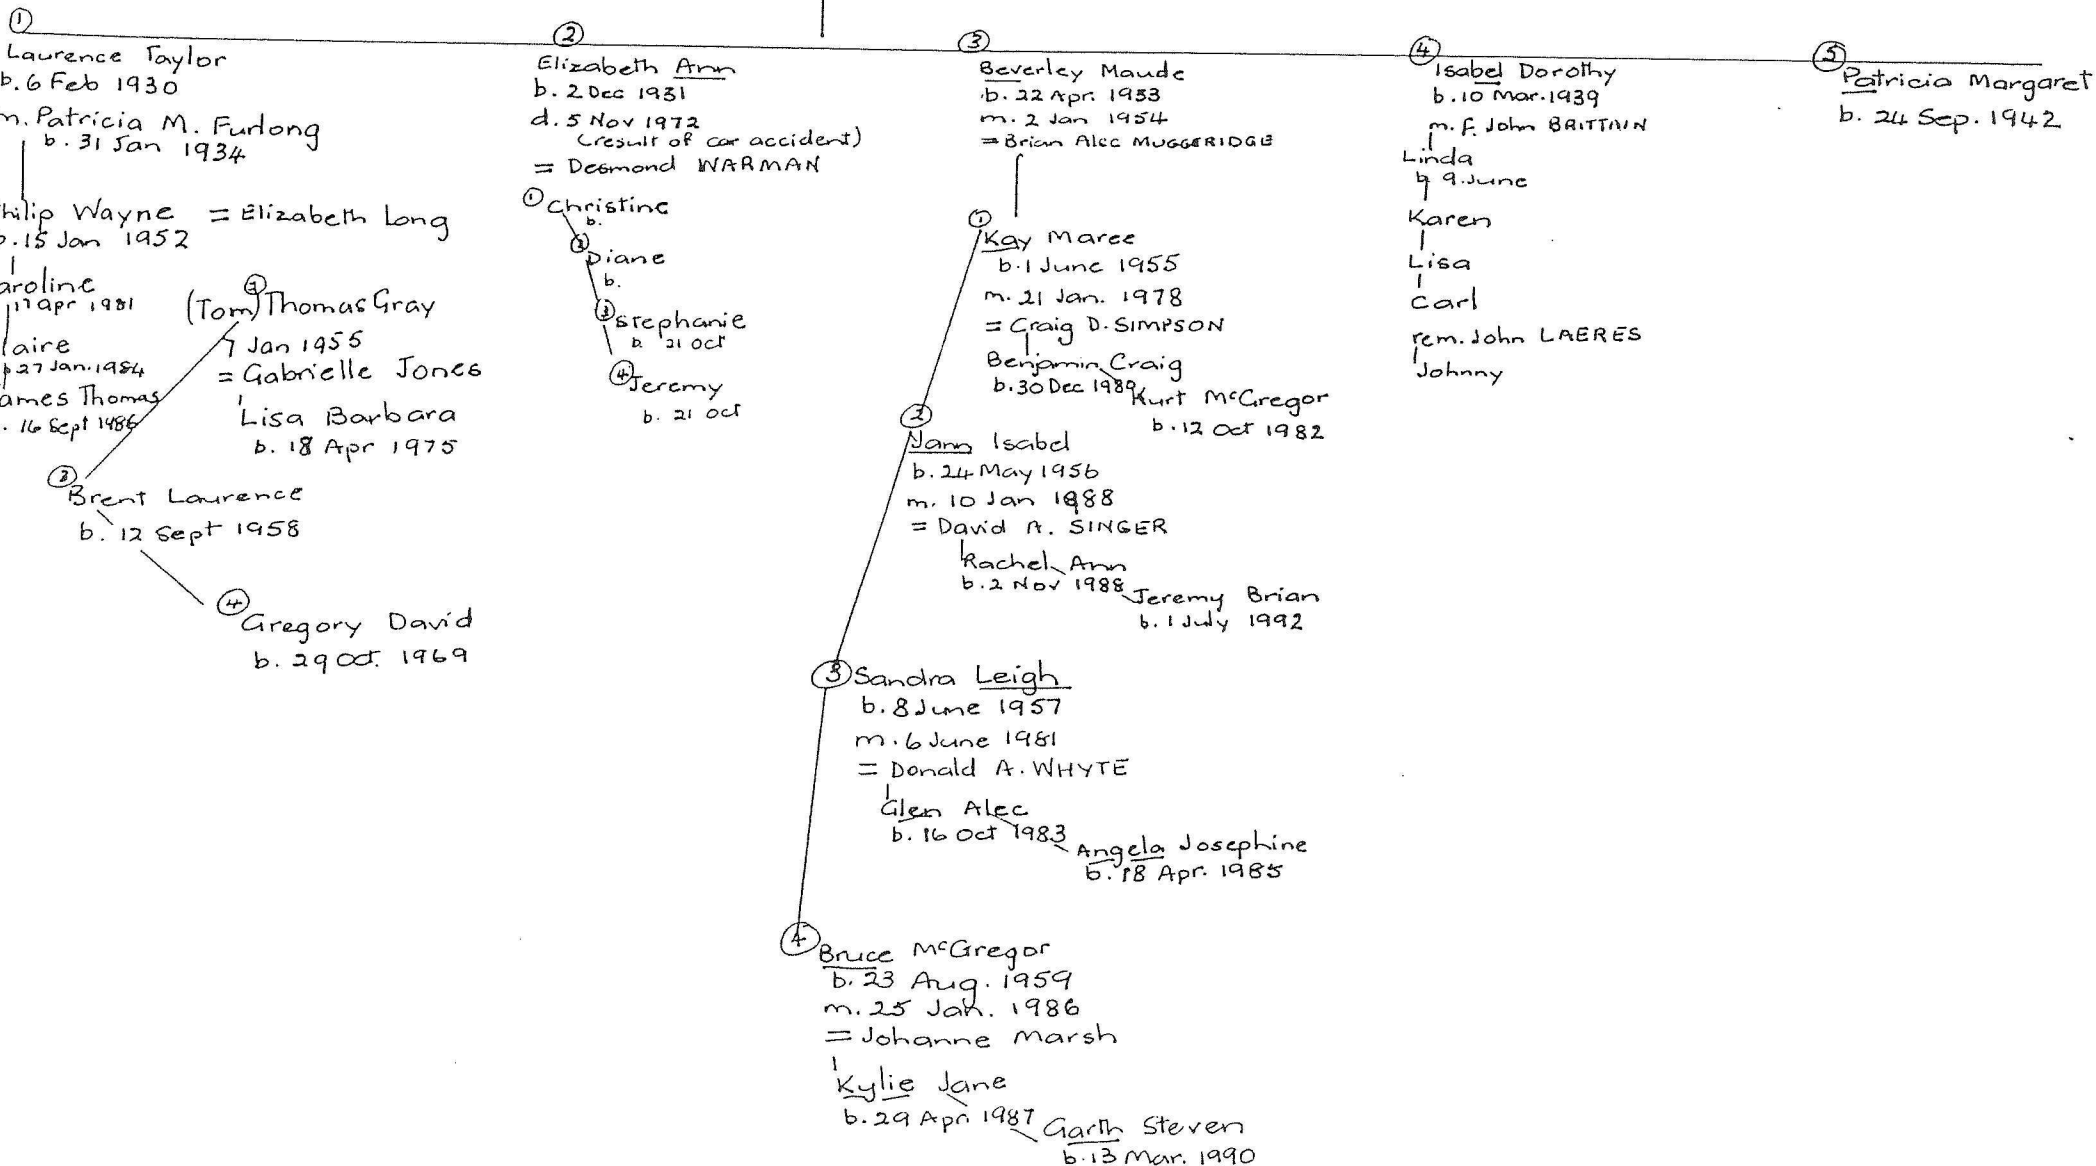 ①
Laurence Taylor
b. 6 Feb 1930
m. Patricia M. Furlong
b. 31 Jan 1934
hilip Wayne = Elizabeth Long
b. 15 Jan 1952
aroline
17 Apr 1981
laire
b 27 Jan. 1984
ames Thomas
. 16 Sept 1986
②
(Tom) Thomas Gray
Jan 1955
= Gabrielle Jones
Lisa Barbara
b. 18 Apr 1975
③
Brent Laurence
b. 12 Sept 1958
④
Gregory David
b. 29 Oct. 1969
②
Elizabeth Ann
b. 2 Dec 1931
d. 5 Nov 1972
(result of car accident)
= Desmond WARMAN
① Christine
b.
②
Diane
b.
③ Stephanie
b. 21 Oct
④ Jeremy
b. 21 Oct
③
Beverley Maude
b. 22 Apr. 1933
m. 2 Jan 1954
= Brian Alec MUGGERIDGE
①
Kay Maree
b. 1 June 1955
m. 21 Jan. 1978
= Craig D. SIMPSON
Benjamin Craig
b. 30 Dec 1980
Kurt McGregor
b. 12 Oct 1982
②
Jann Isabel
b. 24 May 1956
m. 10 Jan 1988
= David A. SINGER
Rachel Ann
b. 2 Nov 1988
Jeremy Brian
b. 1 July 1992
③ Sandra Leigh
b. 8 June 1957
m. 6 June 1981
= Donald A. WHYTE
Glen Alec
b. 16 Oct 1983
Angela Josephine
b. 18 Apr. 1985
④
Bruce McGregor
b. 23 Aug. 1959
m. 25 Jan. 1986
= Johanne Marsh
Kylie Jane
b. 29 Apri 1987
Garth Steven
b. 13 Mar. 1990
④
Isabel Dorothy
b. 10 Mar. 1939
m. F. John BRITTAIN
Linda
b 9. June
Karen
Lisa
Carl
rem. John LAERES
Johnny
⑤
Patricia Margaret
b. 24 Sep. 1942